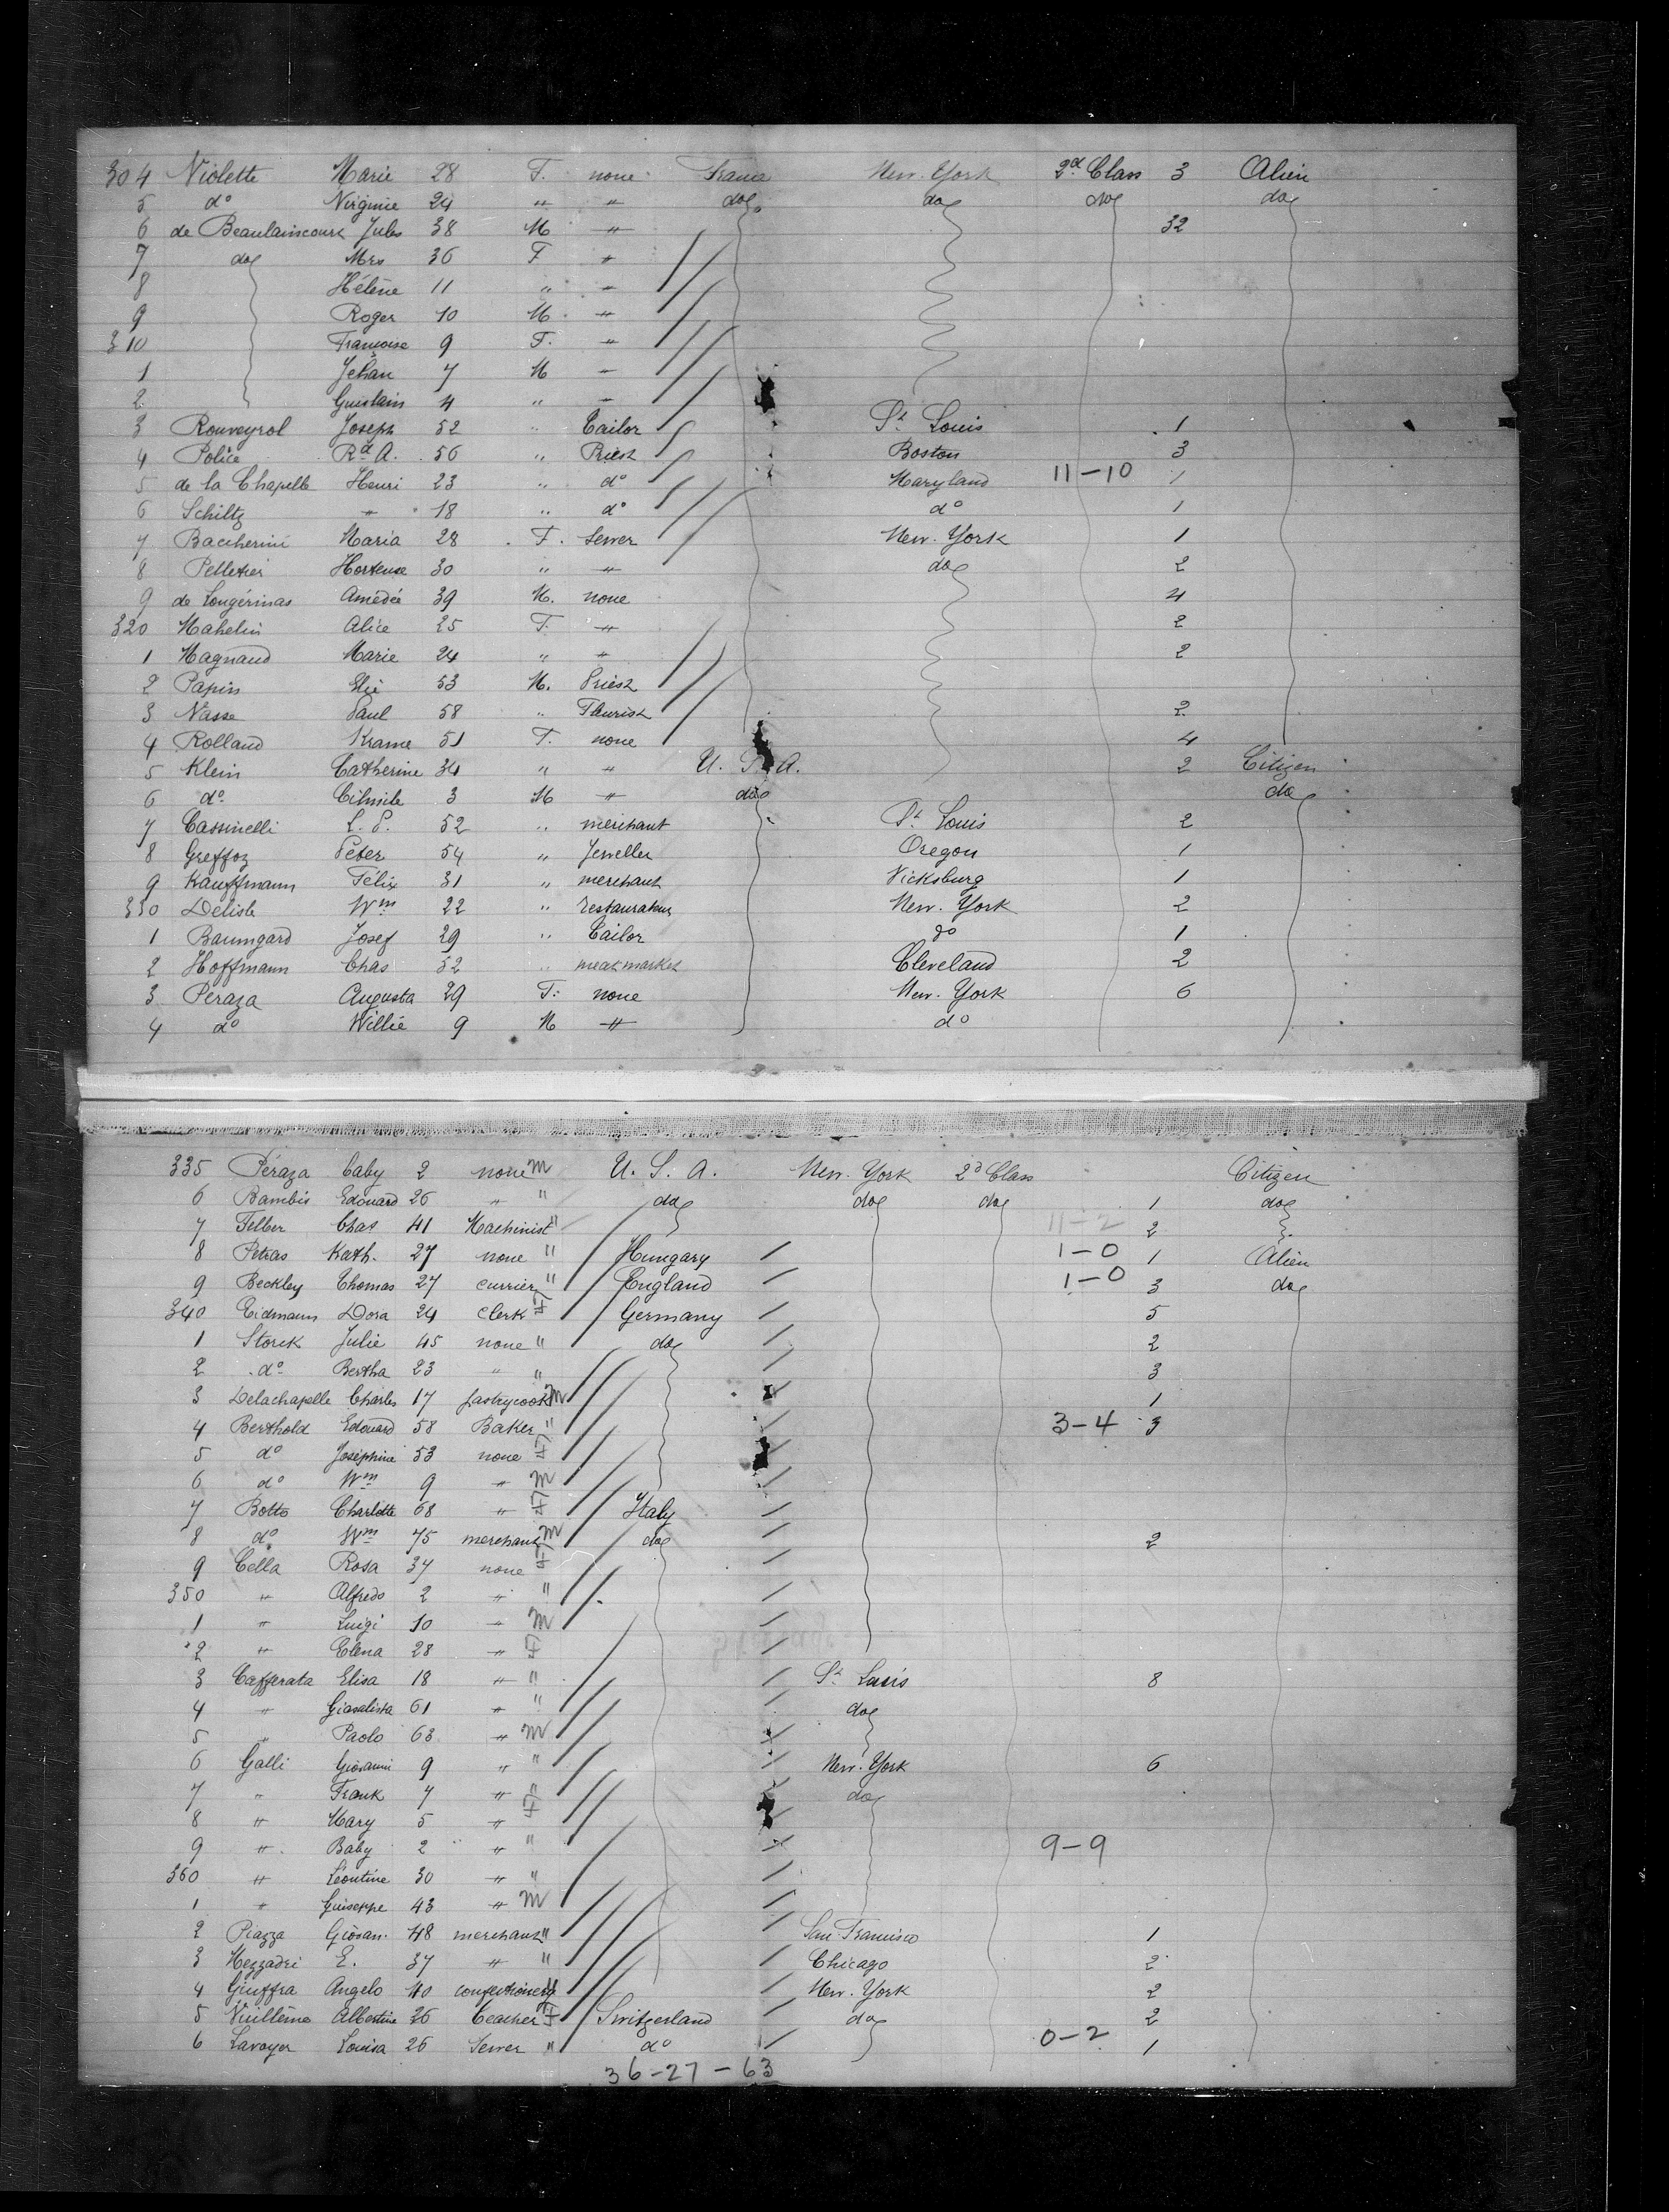 304 Violette Marie 28 F. none France New. York 2d Class 3 Alien
5 do Virginie 24 " " do do do do
6 de Beaulaincourt Jules 38 M " 32
7 do Mrs 36 F "
8 Hélène 11 " "
9 Roger 10 M "
310 Françoise 9 F. "
1 Jehan 7 M "
2 Guislain 4 " "
3 Rouveyrol Joseph 52 " Tailor St Louis 1
4 Police Rd A. 56 " Priest Boston 3
5 de la Chapelle Henri 23 " do Maryland 11-10 1
6 Schiltz " 18 " do do 1
7 Baccherini Maria 28 F. Sewer New. York 1
8 Pelletier Hortense 30 " " do 2
9 de Longérinas Amédée 39 M. none 4
320 Mahelin Alice 25 F. " 2
1 Magnaud Marie 24 " " 2
2 Papin Elie 53 M. Priest
3 Nasse Paul 58 " Fleurist 2
4 Rolland Krame 51 F. none 4
5 Klein Catherine 34 " " U. S. A. 2 Citizen
6 do 3 M " do do
7 Cassinelli L. P. 52 " merchant St Louis 2
8 Greffoz Peter 54 " Jeweller Oregon 1
9 Kauffmann Félix 31 " merchant Vicksburg 1
330 Delisle Wm 22 " restaurateur New. York 2
1 Baumgard Josef 29 " Tailor do 1
2 Hoffmann Chas 52 " meat market Cleveland 2
3 Peraza Augusta 29 F. none New. York 6
4 do Willie 9 M " do
335 Péraza baby 2 none m U. S. A. New. York 2d Class Citizen
6 Bambis Edouard 26 " " do do do 1 do
7 Felber Chas 41 Machinist " 11-2 2
8 Petras Kath. 27 none " Hungary 1-0 1 Alien
9 Beckley Thomas 27 currier " England 1-0 3 do
340 Eidmann Dora 24 Clerk F Germany 5
1 Storck Julie 45 none " do 2
2 do Bertha 23 " " 3
3 Delachapelle Charles 17 pastrycook M 1
4 Berthold Edouard 58 Baker " 3-4 3
5 do Joséphine 53 none F
6 do Wm 9 " M
7 Botto Charlotte 68 " F Italy
8 do Wm 75 merchant M do 2
9 Cella Rosa 37 none F
350 " Alfredo 2 " "
1 " Luigi 10 " M
2 " Elena 28 " F
3 Cafferata Elisa 18 " " St Louis 8
4 " 61 " " do
5 " Paolo 63 " M
6 Galli Giovanni 9 " " New. York 6
7 " Frank 7 " " do
8 " Mary 5 " F
9 " Baby 2 " " 9-9
360 " Léontine 30 " "
1 " Guiseppe 43 " M
2 Piazza Giovan. 48 merchant " San Francisco 1
3 Mezzadri E. 37 " " Chicago 2
4 Giuffra Angelo 40 confectionery " New. York 2
5 Vuillème Albertine 26 Teacher F Switzerland do 2
6 Lavoyer Louisa 26 Sewer " do 0-2 1
36-27-63